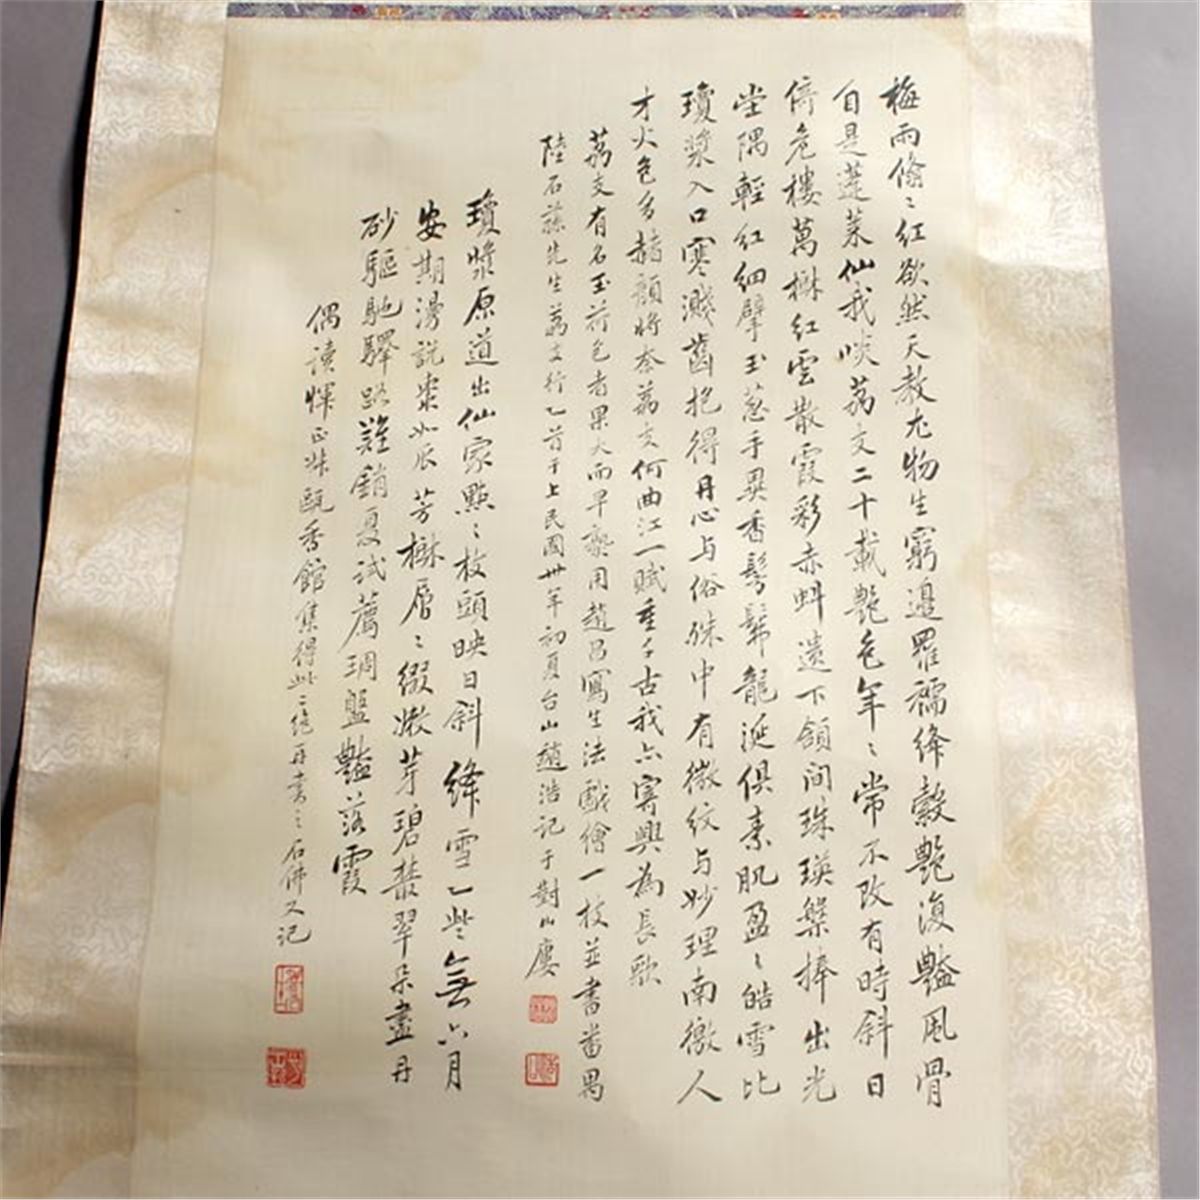 梅雨翛翛紅欲然天教尤物生窮邊羅襦絳縠艷復豔風骨
自是蓬萊仙我啖荔支二十載艷色年年常不改有時斜日
倚危樓萬樹紅雲散霞彩赤虯遺下頷間珠瑛槃捧出光
坐隅輕紅細擘玉蔥手異香髣髴龍涎俱素肌盈盈皓雪比
瓊漿入口寒濺齒抱得丹心与俗殊中有微紋与妙理南徼人
才火色多赭顏將奈荔支何曲江一賦重千古我亦寄興為長歌
荔支有名玉荷包者果大而早熟用趙昌寫生法戲繪一枝並書番禺
陸石蓀先生荔支行乙首于上民國卅年初夏台山趙浩記于對山廔
瓊漿原道出仙家點點枝頭映日斜絳雪乙些無六月
安期漫說棗如瓜芳樹層層綴嫩芽碧叢翠朵盡丹
砂驅馳驛路難銷夏試薦琱盤豔落霞
偶讀惲正叔甌香館集得此二絕再書之石佛又記